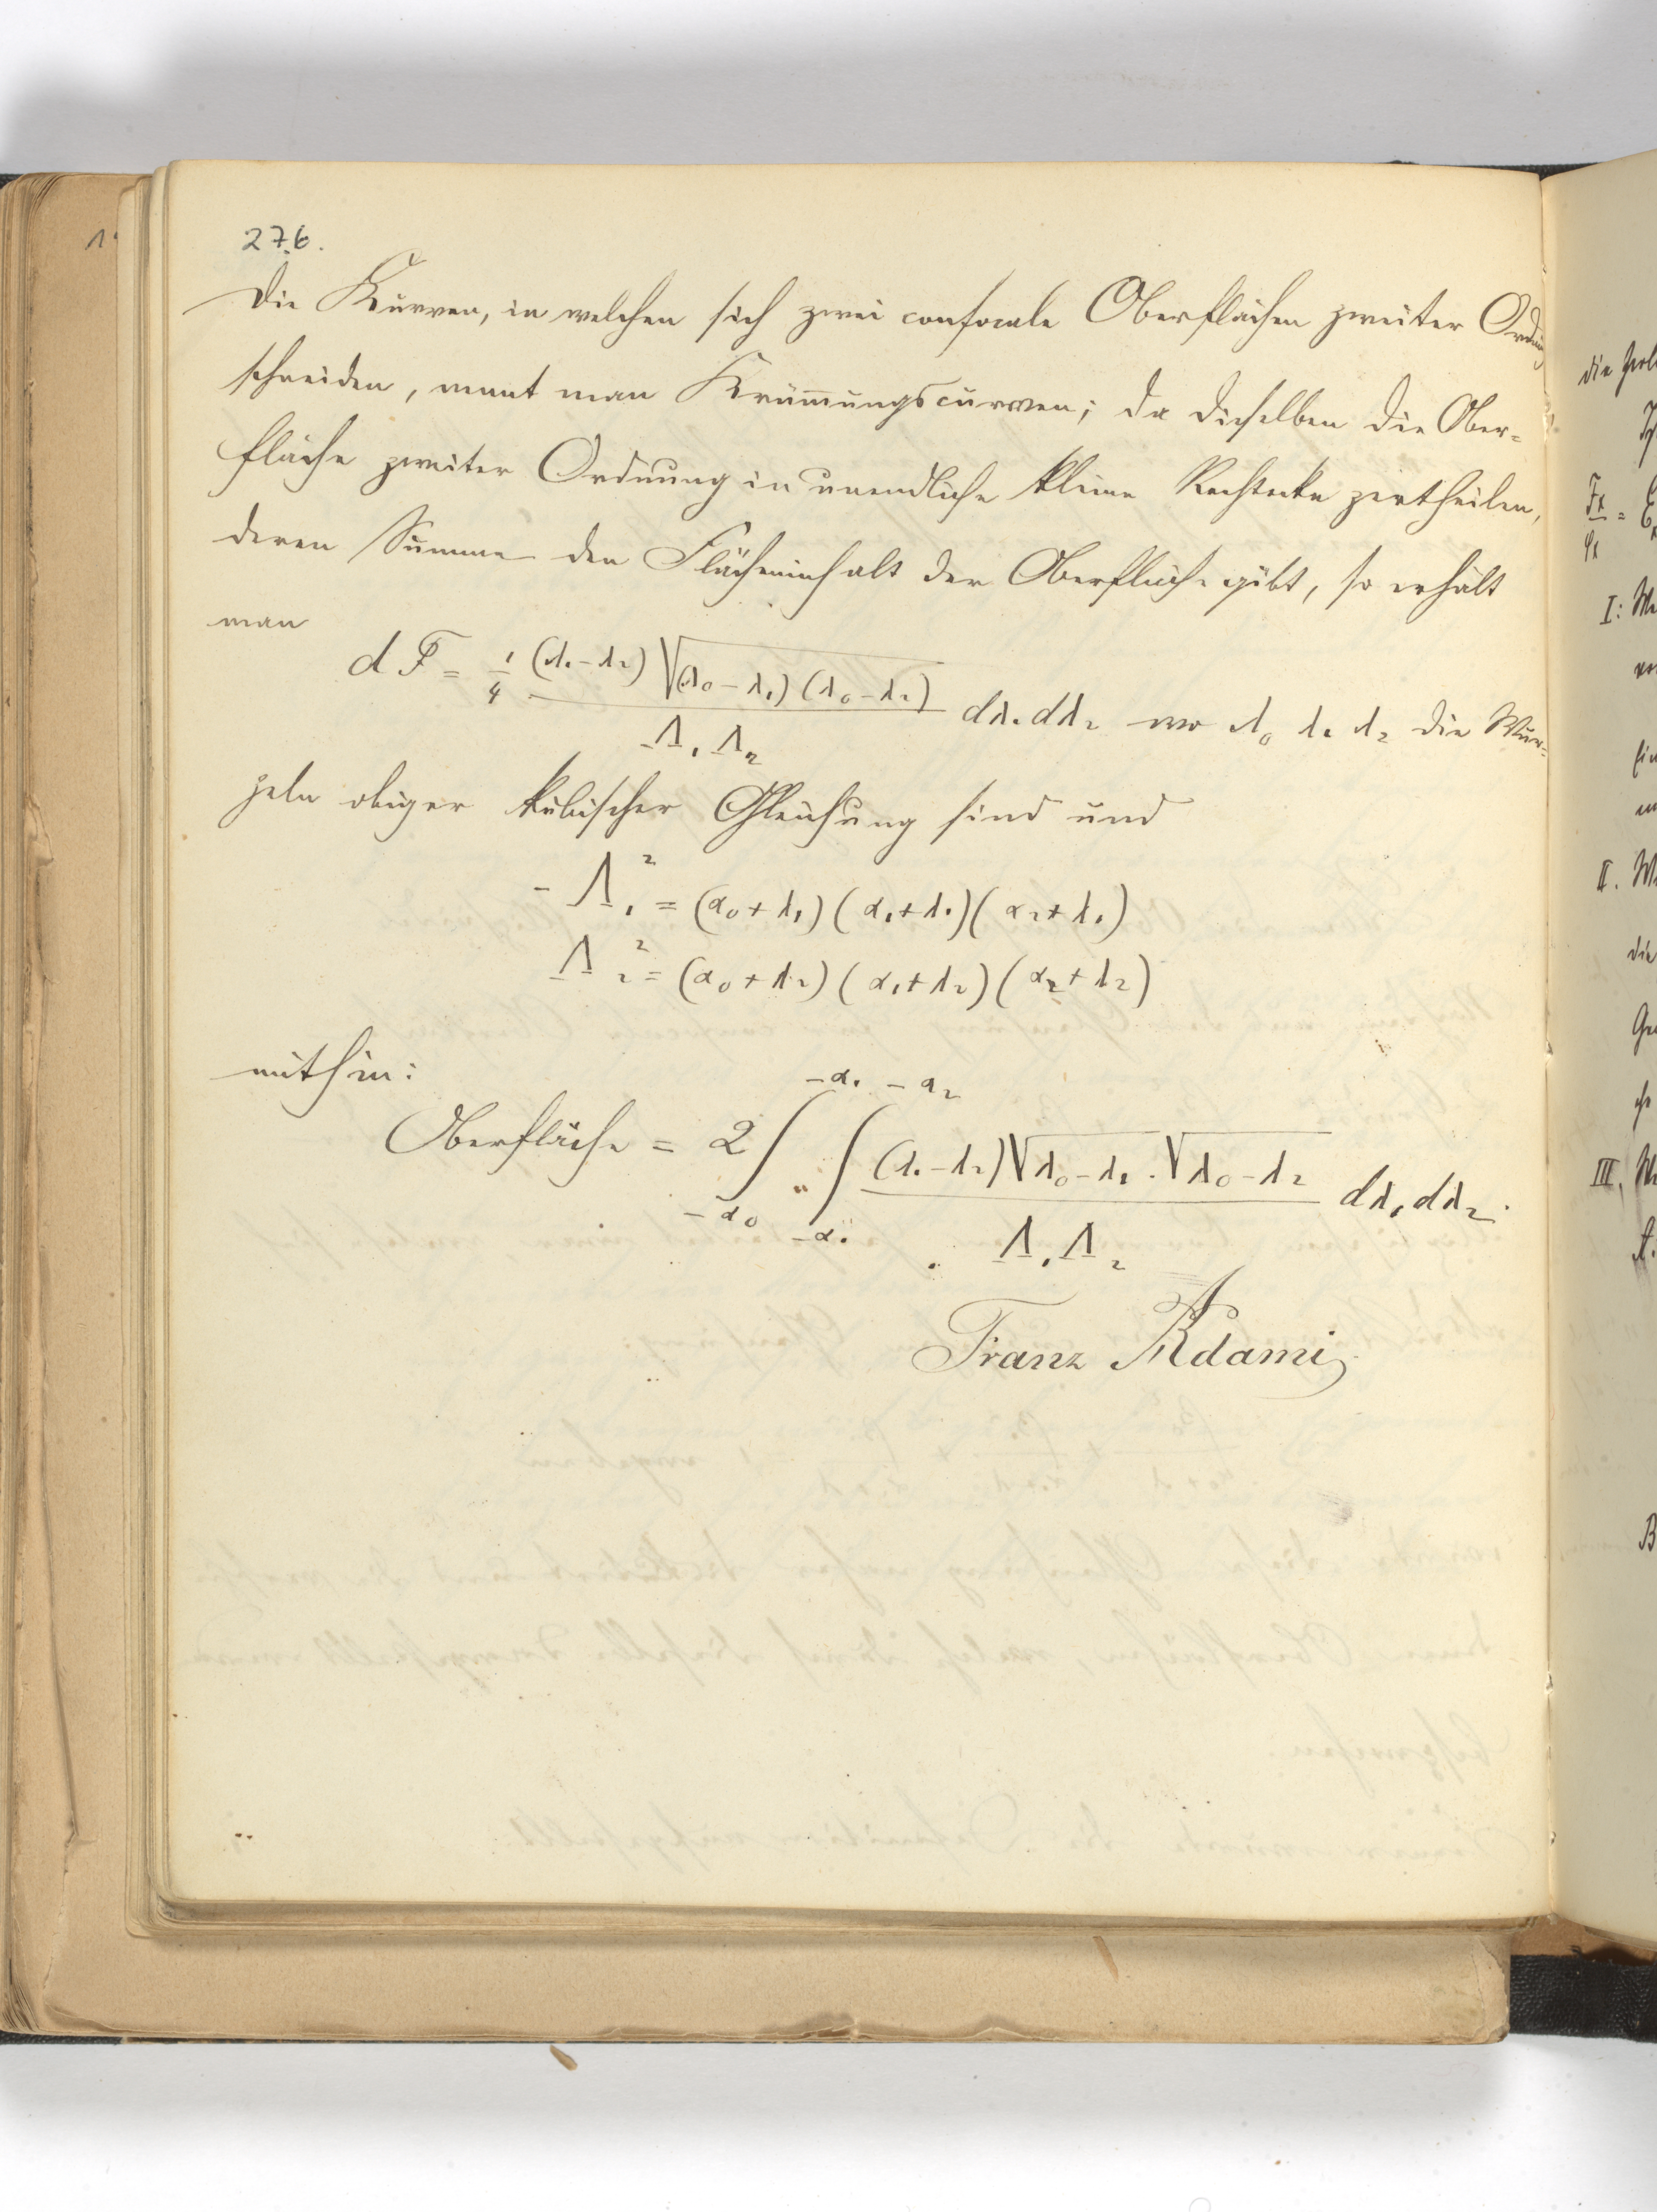 276.
Die Kurven, in welchen sich zwei confocale Oberflächen zweiter Ordnung
schneiden, nennt man Krümmungscurven; da dieselben die Ober-
fläche zweiter Ordnung in unendliche kleine Rechtecke zertheilen,
deren Summe den Flächeninhalt der Oberfläche gibt, so erhält
man
dF = 1/4 (λ₁ - λ₂) √(λ₀ - λ₁)(λ₀ - λ₂) / Λ₁ Λ₂ dλ₁ dλ₂ wo λ₀ λ₁ λ₂ die Wur-
zeln obiger kubischer Gleichung sind und
- Λ₁² = (α₀ + λ₁) (α₁ + λ₁) (α₂ + λ₁)
Λ₂² = (α₀ + λ₂) (α₁ + λ₂) (α₂ + λ₂)
mithin:
Oberfläche = 2 ∫_{-α₀}^{-α₁} ∫_{-α₁}^{-α₂} (λ₁ - λ₂) √λ₀ - λ₁ . √λ₀ - λ₂ / Λ₁ Λ₂ dλ₁ dλ₂.
Franz Adami
die
I: We
II. W
die
III, We
B